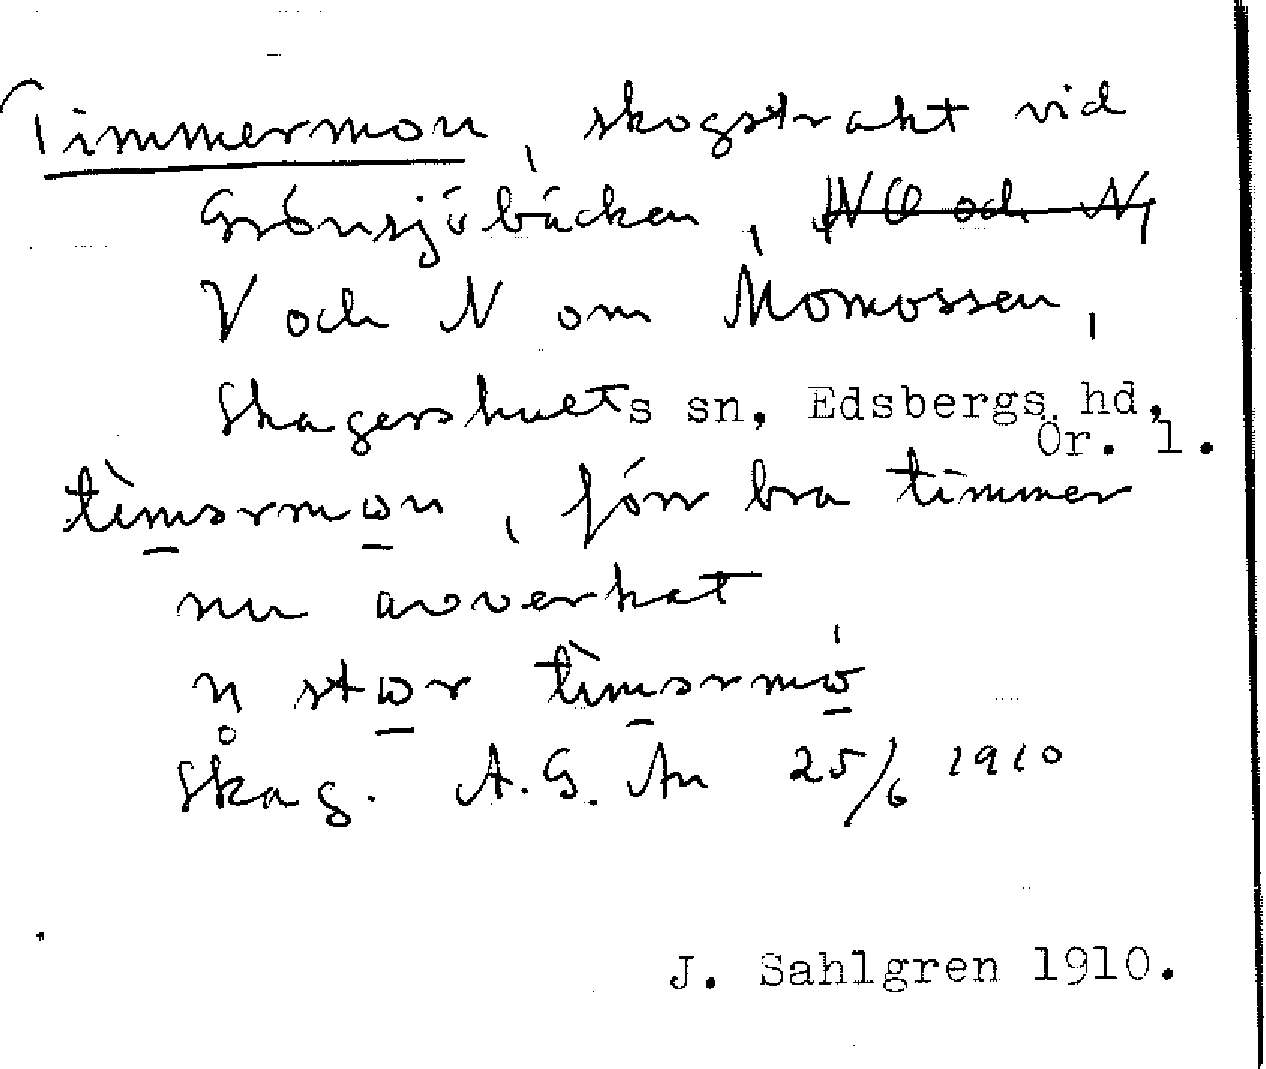 Timmermon, skogstrakt vid
Grönsjöbäcken, N O och N,
V och N om Momossen,
Skagershults sn, Edsbergs hd,
Ör. l.
tìmərmωn, förr bra timmer
nu avverkat
n̥ stωr tìmərmω̍
Skag. A.G. An 25/6 1910
J. Sahlgren 1910.